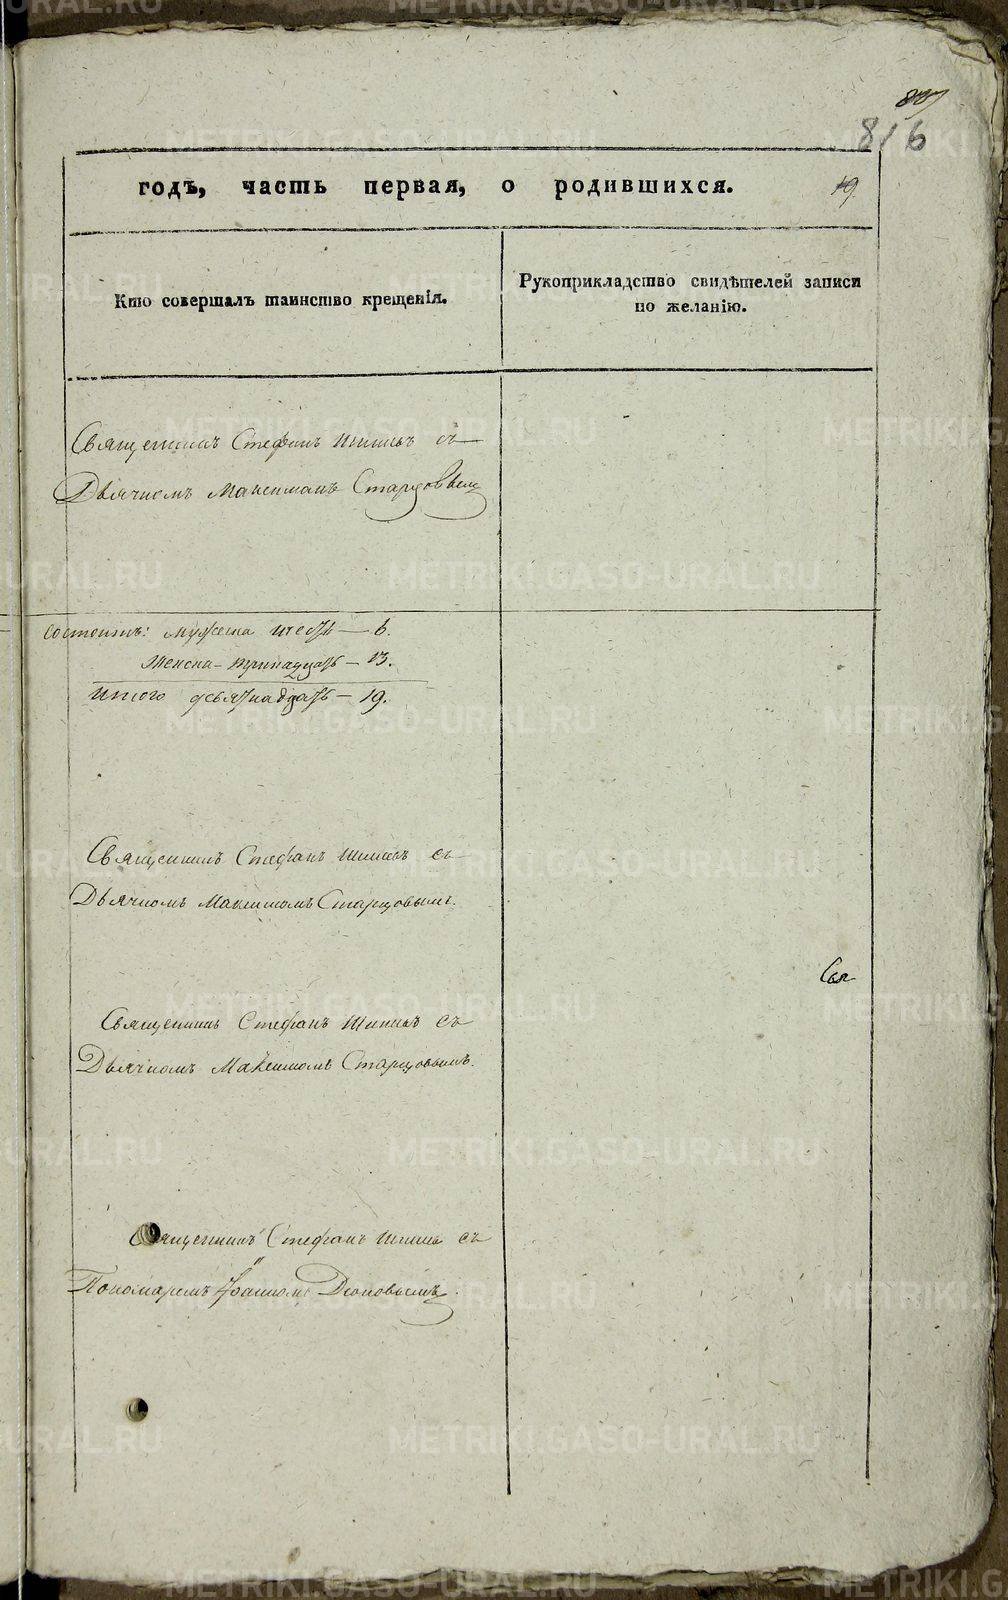 816
годъ, часть первая, о родившихся.
19
Кто совершалъ таинство крещенія.
Рукоприкладство свидѣтелей записи
по желанію.
Священникъ Стефанъ съ
Дьячкомъ Максимомъ Старцовымъ
состоитъ: мужеска шесть — 6.
женска — тринадцать — 13.
итого девятнадцать — 19.
Священникъ Стефанъ съ
Дьячкомъ Максимомъ Старцовымъ.
Свя
Священникъ Стефанъ съ
Дьячкомъ Максимомъ Старцовымъ.
Священникъ Стефанъ съ
Пономаремъ Іоанномъ
METRIKI.GASO-URAL.RU